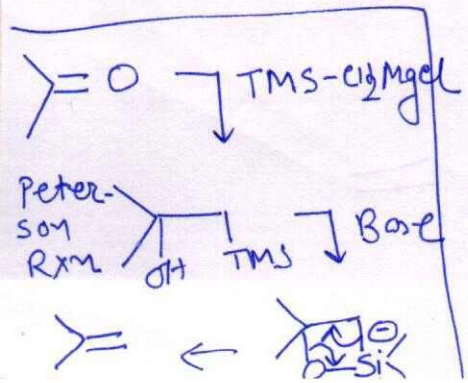 O TMS-CH2MgCl
Peter-
son
Rxn
OH TMS Base
⊖
O-Si